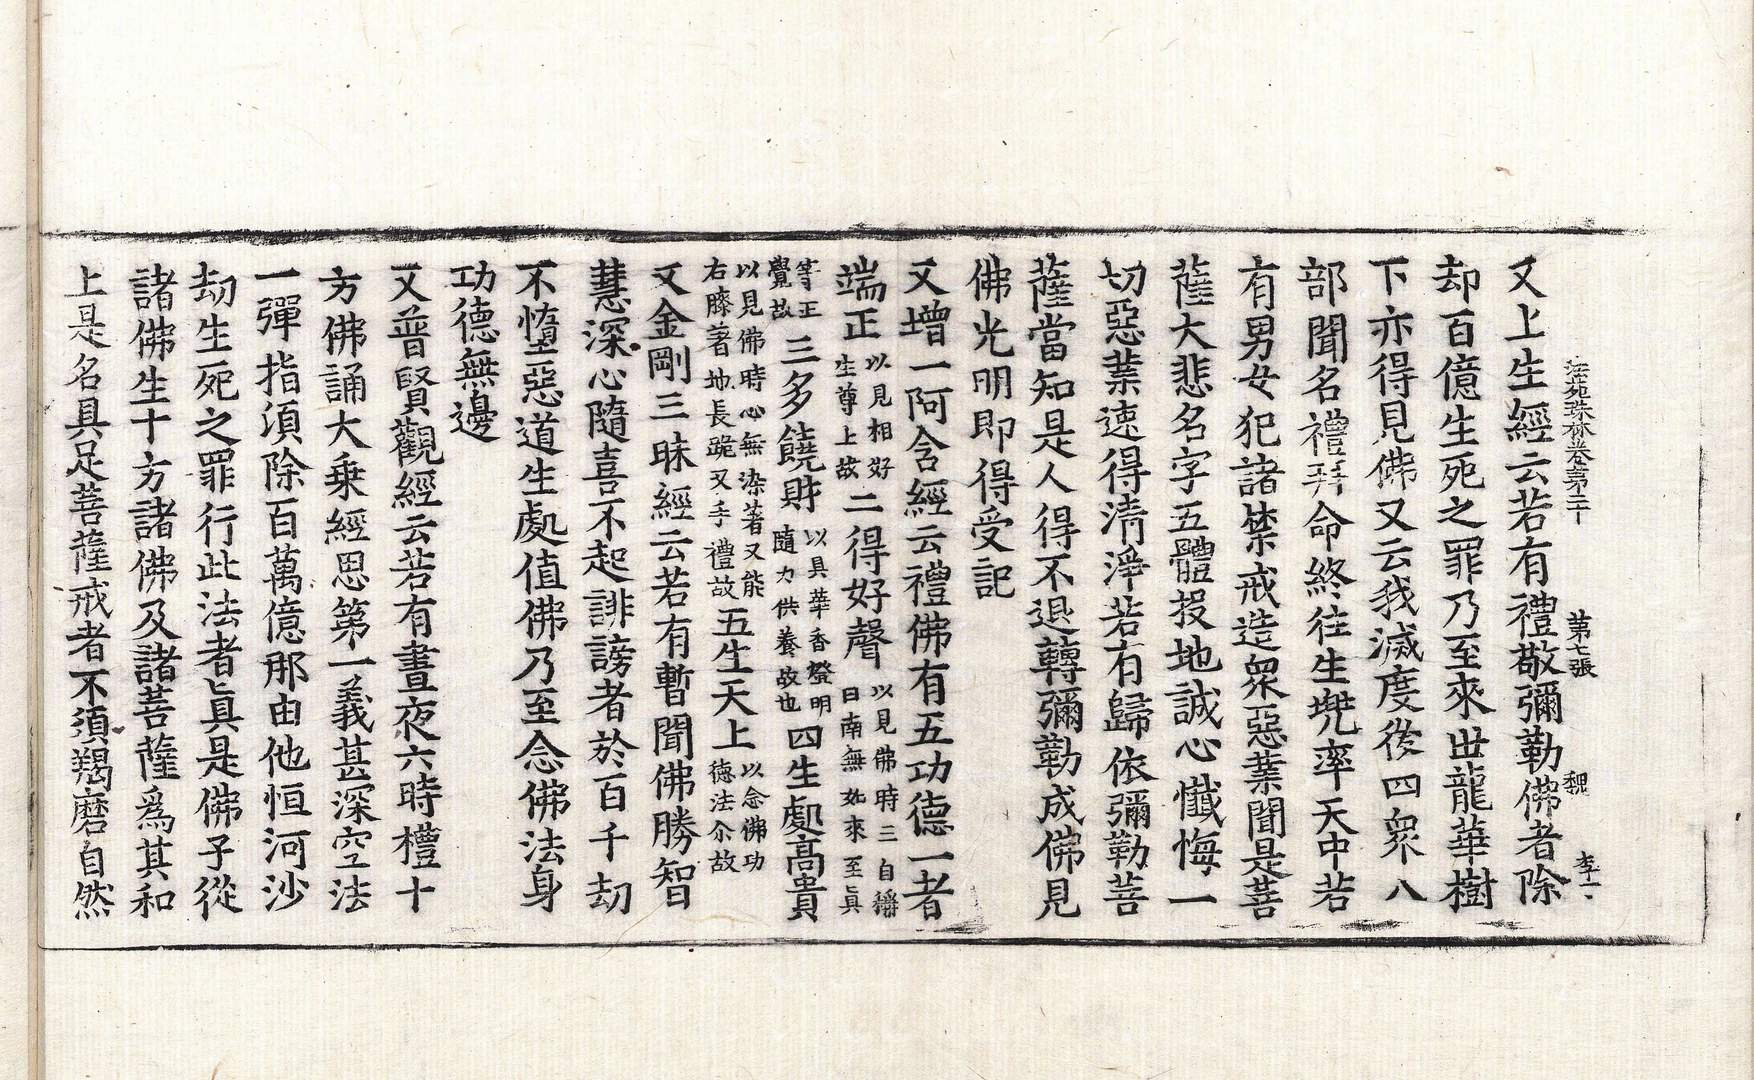 法苑珠林卷第二十 第七張 李一
又上生經云若有禮敬彌勒佛者除
却百億生死之罪乃至來世龍華樹
下亦得見佛又云我滅度後四衆八
部聞名禮拜命終往生兠率天中若
有男女犯諸禁戒造衆惡業聞是菩
薩大悲名字五體投地誠心懺悔一
切惡業速得清淨若有歸依彌勒菩
薩當知是人得不退轉彌勒成佛見
佛光明即得受記
又增一阿含經云禮佛有五功德一者
端正以見相好生尊上故二得好聲以見佛時三自稱曰南無如來至眞
等正覺故三多饒財以具華香燈明隨力供養故也四生處高貴
以見佛時心無染著又能右膝著地長跪叉手禮故五生天上以念佛功德法尒故
又金剛三昧經云若有暫聞佛勝智
慧深心隨喜不起誹謗者於百千劫
不墮惡道生處值佛乃至念佛法身
功德無邊
又普賢觀經云若有晝夜六時禮十
方佛誦大乗經思第一義甚深空法
一彈指須除百萬億那由他恒河沙
劫生死之罪行此法者眞是佛子從
諸佛生十方諸佛及諸菩薩爲其和
上是名具足菩薩戒者不須羯磨自然